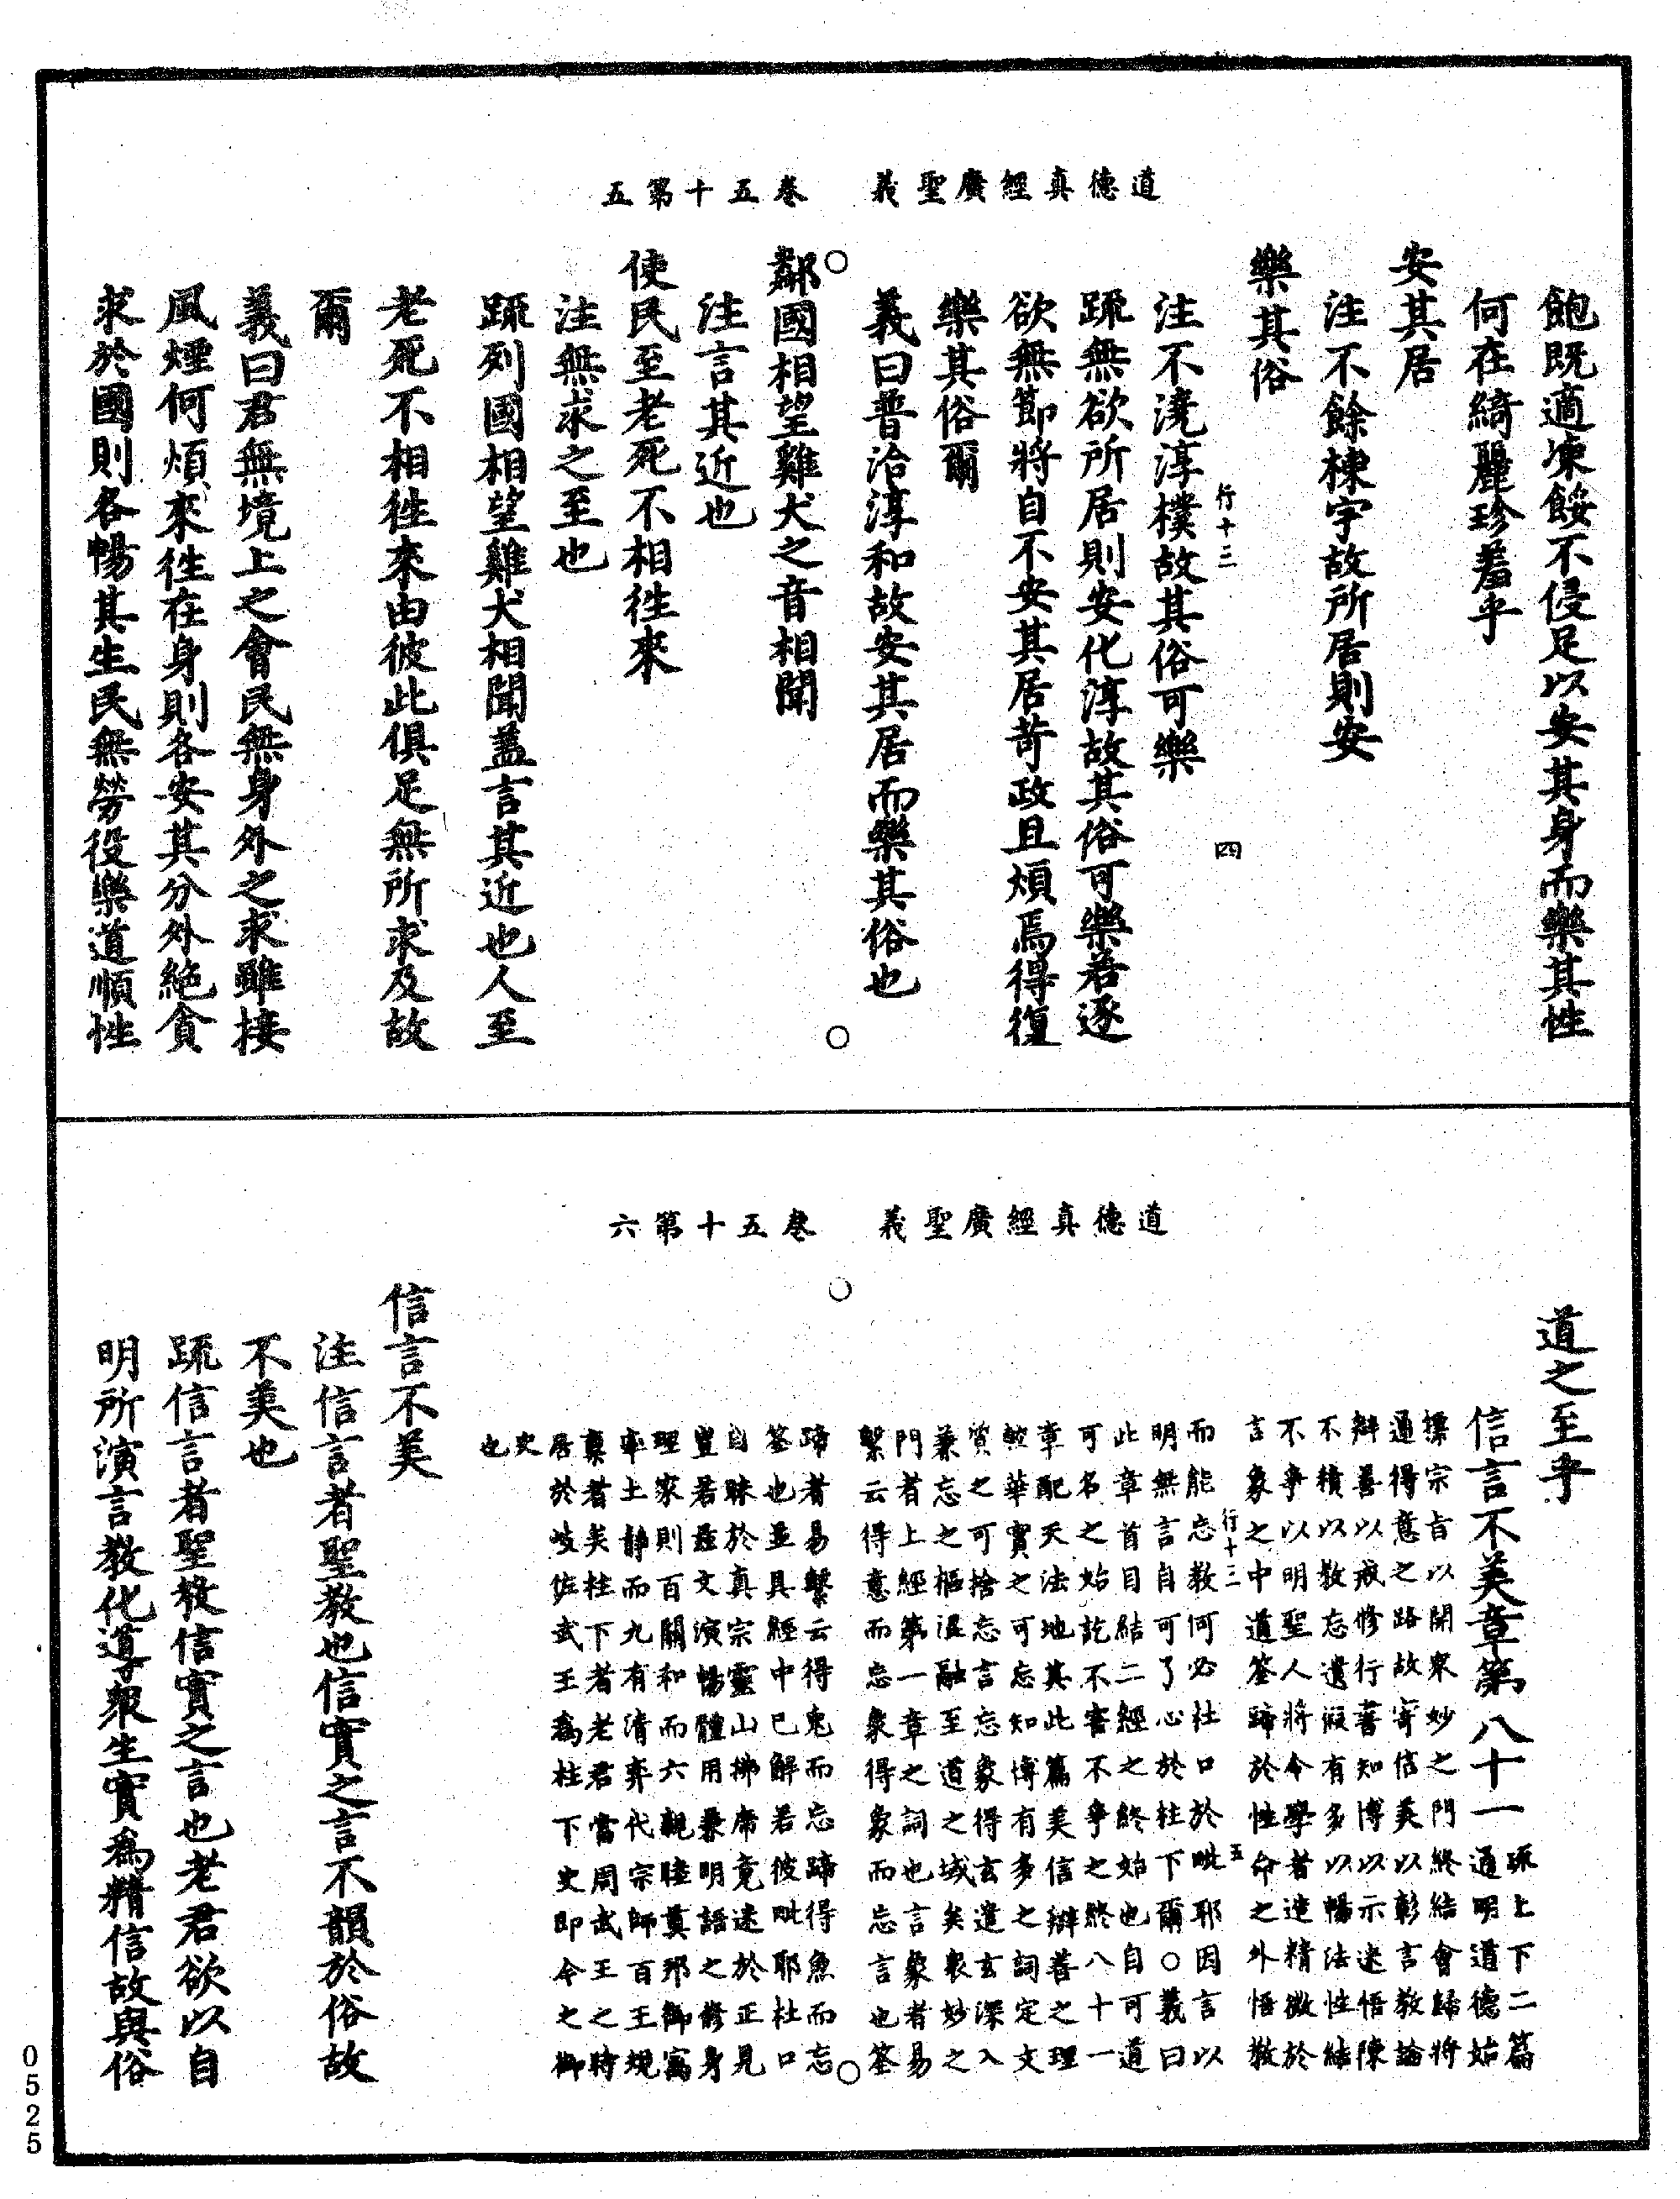 道德真經廣聖義　卷五十第五
飽既適凍餒不侵足以安其身而樂其性
何在綺麗珍羞乎
安其居
注不餘棟宇故所居則安
樂其俗
行十三　四
注不澆淳樸故其俗可樂
疏無欲所居則安化淳故其俗可樂若逐
欲無節將自不安其居苛政且煩焉得復
樂其俗爾
義曰普洽淳和故安其居而樂其俗也
鄰國相望雞犬之音相聞
注言其近也
使民至老死不相往來
注無求之至也
疏列國相望雞犬相聞蓋言其近也人至
老死不相往來由彼此俱足無所求及故
爾
義曰君無境上之會民無身外之求雖接
風煙何煩來往在身則各安其分外絕貪
求於國則各暢其生民無勞役樂道順性
道德真經廣聖義　卷五十第六
道之至乎
信言不美章第八十一
疏上下二篇
通明道德始
標宗旨以開眾妙之門終結會歸將
通得意之路故寄信美以彰言教論
辯善以戒修行善知博以示迷悟陳
不積以教忘遣滯有多以暢法性結
不爭以明聖人將令學者造精微於
言象之中道筌蹄於性命之外悟教
行十三　五
而能忘教何必杜口於毗耶因言以
明無言自可了心於柱下爾○義曰
此章首目結二經之終始也自可道
可名之始訖不害不爭之終八十一
章配天法地其此篇美信辯善之理
較華實之可忘知博有多之詞定文
質之可捨忘言忘象得玄遣玄深入
兼忘之樞混融至道之域矣眾妙之
門者上經第一章之詞也言象者易
繫云得意而忘象得象而忘言也筌
蹄者易繫云得兔而忘蹄得魚而忘
筌也並具經中已解若彼毗耶杜口
自昧於真宗靈山拂席竟迷於正見
豈若茲文演暢體用兼明語之修身
理家則百關和而六親睦奠邦御寓
率土靜而九有清弈代宗師百王規
稟者矣柱下者老君當周武王之時
居於岐佐武王為柱下史即今之御
史
也
信言不美
注信言者聖教也信實之言不韻於俗故
不美也
疏信言者聖教信實之言也老君欲以自
明所演言教化導眾生實為精信故與俗
0525